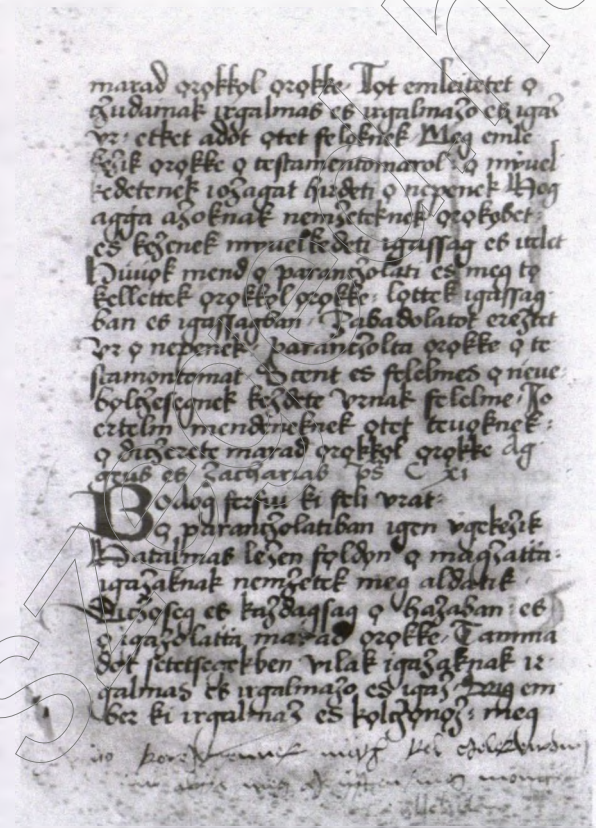 marad ọrọkkọl ọrọkke Tọt emleitetet ọ
čudainak irgalmas es irgalmaʒo es igaʒ
vr etket adot ọtet felọknek Meg emle
kʒik ọrọkke ọ testamentomarol ọ mỹuel
kedetenek ioʒagat hirdeti ọ nepenek Hog
agga aʒoknak nemʒeteknek ọrọkọbet
es keʒenek mỹuelkedeti igassag es itelet
Hiuọk mend ọ paranʒolati es meg tọ
kellettek ọrọkkọl ọrọkke lọttek igassag
ban es igassagban Zabadolatot ereʒtet
vr ọ nepenek paranʒolta ọrọkke ọ te
stamontomat Scent es felelmes ọ neue
bọlʒesegnek keʒdete vrnak felelme Io
ertelm mendeneknek ọtet teuọknek
ọ diʒerete marad ọrọkkọl ọrọkke Ag
geus es Zacharias ps C xi
Bodog ferfiu ki feli vrat
Ọ paranʒolatiban igen vgekeʒik
Hatalmas leʒen fọldọn ọ magʒatta
igaʒaknak nemʒetek meg aldatik
Diʒọseg es kaʒdagsag ọ haʒaban es
ọ igaʒolatta marad ọrọkke Tamma
dot setetsegekben vilak igaʒaknak ir
galmas es irgalmaʒo es igaʒ Vig em
ber ki irgalmaʒ es kọlʒọnọʒ meg